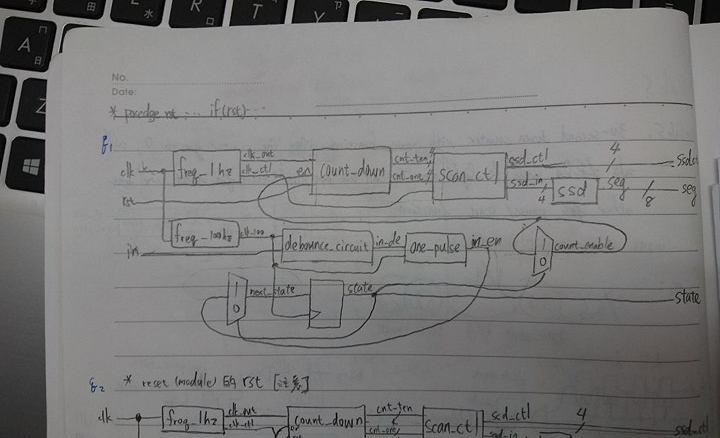 No.
Date:
* posedge rst ... if(rst) ...
clk freq_1hz clk_out clk_ctl en count_down cnt_ten cnt_one scan_ctl ssd_ctl 4 ssd_in 4 ssd seg 8 seg
rst
in freq_100hz clk_100 debounce_circuit in_de one_pulse in_en 1 0 count_enable
1 0 next_state state state
* reset (module) 的 rst [注意]
clk freq_1hz clk_out clk_ctl count_down cnt_ten cnt_one scan_ctl ssd_ctl 4 ssd_in ssd_ctl